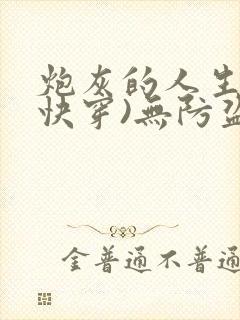 炮灰的人生
快穿)無防盜
金普通不普通